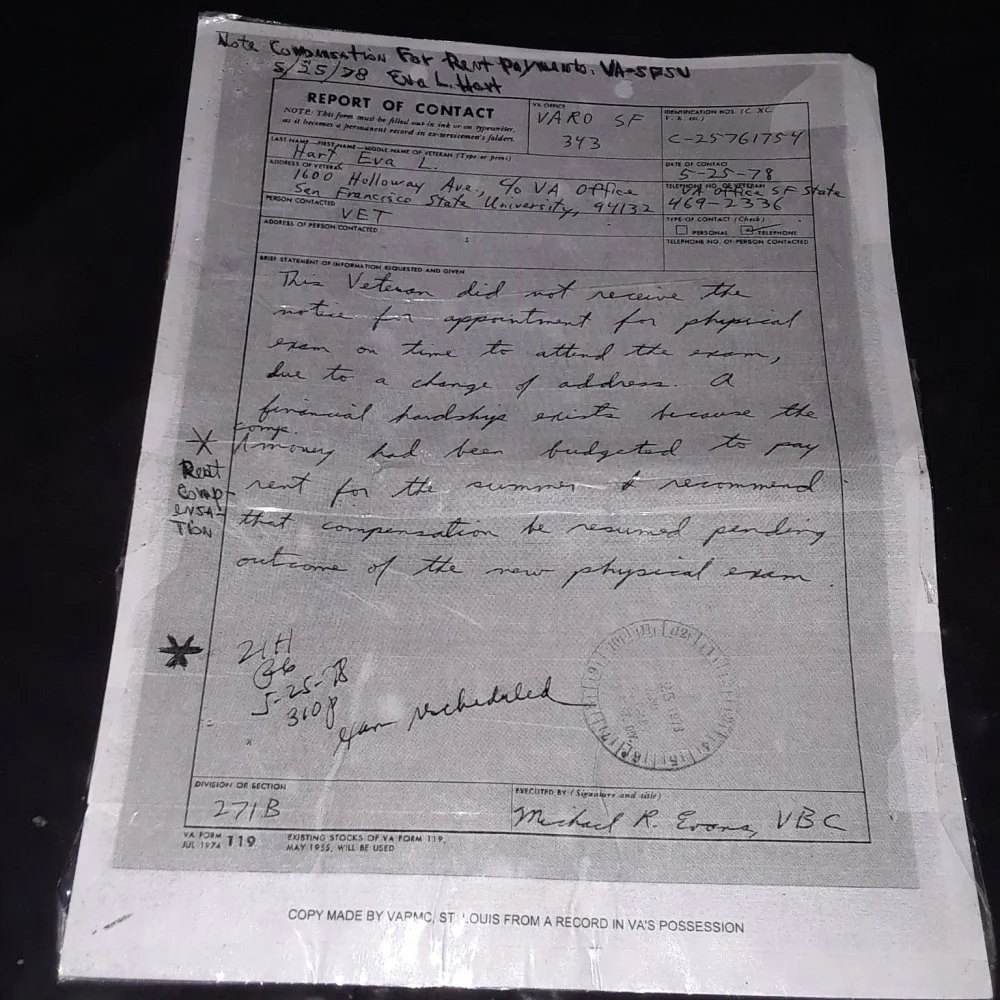 Note Compensation For Rent Payments. VA-SFSU
5/25/78 Eva L. Hart
REPORT OF CONTACT
NOTE: This form must be filled out in ink or on typewriter,
as it becomes a permanent record in ex-servicemen's folders.
VA OFFICE
VARO SF
343
IDENTIFICATION NOS. (C, XC,
C-25761754
LAST NAME—FIRST NAME—MIDDLE NAME OF VETERAN (Type or print)
Hart Eva L.
DATE OF CONTACT
5-25-78
ADDRESS OF VETERAN
1600 Holloway Ave., c/o VA Office
San Francisco State University, 94132
TELEPHONE NO. OF VETERAN
VA Office SF State
469-2336
PERSON CONTACTED
VET
TYPE OF CONTACT (Check)
PERSONAL TELEPHONE
ADDRESS OF PERSON CONTACTED
TELEPHONE NO. OF PERSON CONTACTED
BRIEF STATEMENT OF INFORMATION REQUESTED AND GIVEN
This Veteran did not receive the
notice for appointment for physical
exam on time to attend the exam,
due to a change of address. A
financial hardship exists because the
comp.
money had been budgeted to pay
rent for the summer I recommend
that compensation be resumed pending
outcome of the new physical exam.
Rent
Comp-
ensa-
tion
21H
5-25-78
310P
exam rescheduled
DIVISION OR SECTION
271B
EXECUTED BY (Signature and title)
Michael R. Evans, VBC
VA FORM
JUL 1974 119
EXISTING STOCKS OF VA FORM 119,
MAY 1955, WILL BE USED
COPY MADE BY VARMC, ST. LOUIS FROM A RECORD IN VA'S POSSESSION